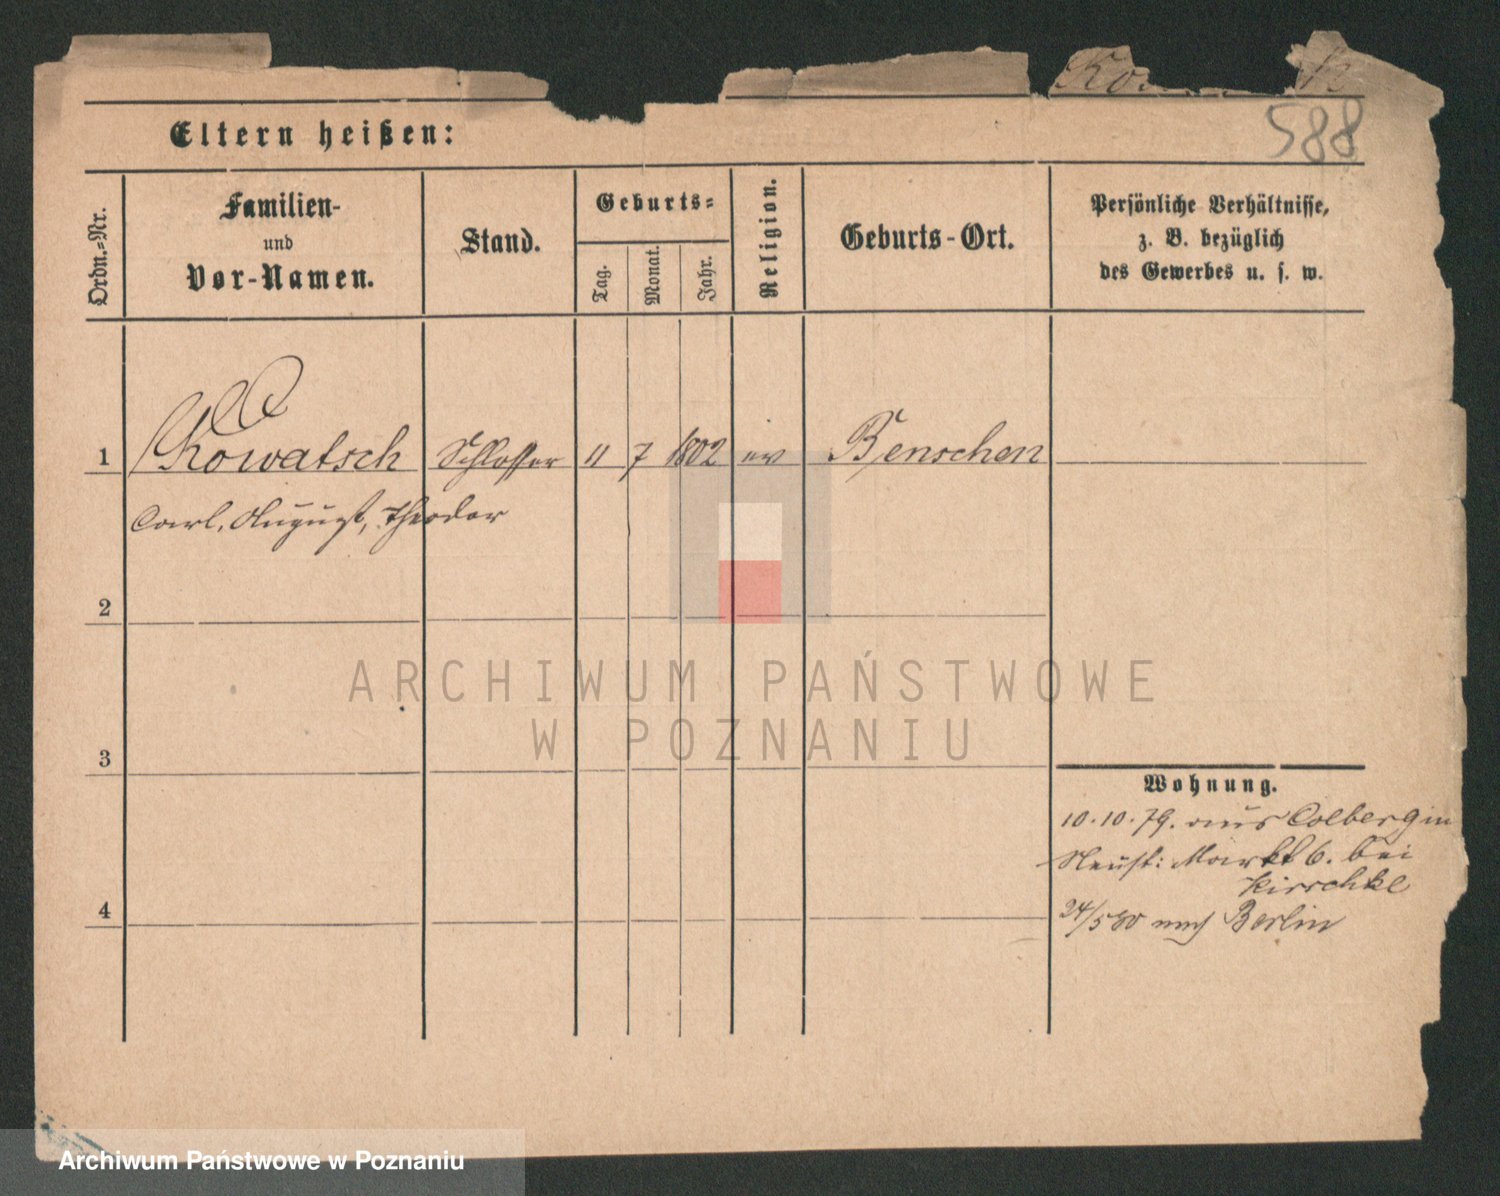 588
Eltern heißen:
Ordn.-Nr.
Familien-
und
Vor-Namen.
Stand.
Geburts-
Tag.
Monat.
Jahr.
Religion.
Geburts-Ort.
Persönliche Verhältnisse,
z. B. bezüglich
des Gewerbes u. s. w.
1 Kowatsch Schlosser 11 7 1802 ev Benschen
Carl, August, Theodor
2
3
4
Wohnung.
10.10.79. aus Colberg in
Neust: Markt 6. bei
Kirschke
24/5 80 nach Berlin
ARCHIWUM PAŃSTWOWE
W POZNANIU
Archiwum Państwowe w Poznaniu